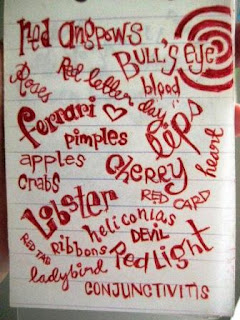 red angpows
BULL'S eye
Roses
Red letter day
blood
ferrari
pimples
lips
apples
CHerrY
heart
crabs
RED CARD
Lobster
heliconias
DEVIL
RED TAB
ribbons
Red Light
ladybird
CONJUNCTIVITIS